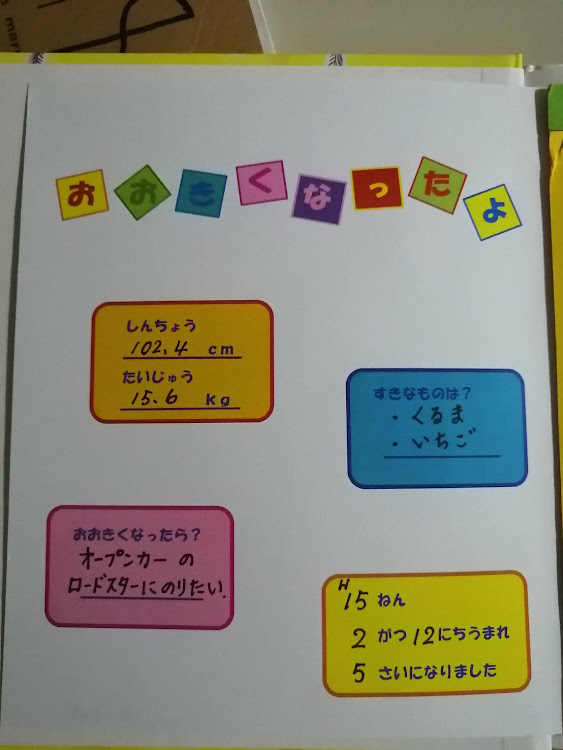 おおきくなったよ
しんちょう
102.4 cm
たいじゅう
15.6 kg
すきなものは?
・くるま
・いちご
おおきくなったら?
オープンカーの
ロードスターにのりたい.
H15 ねん
2 がつ 12にちうまれ
5 さいになりました